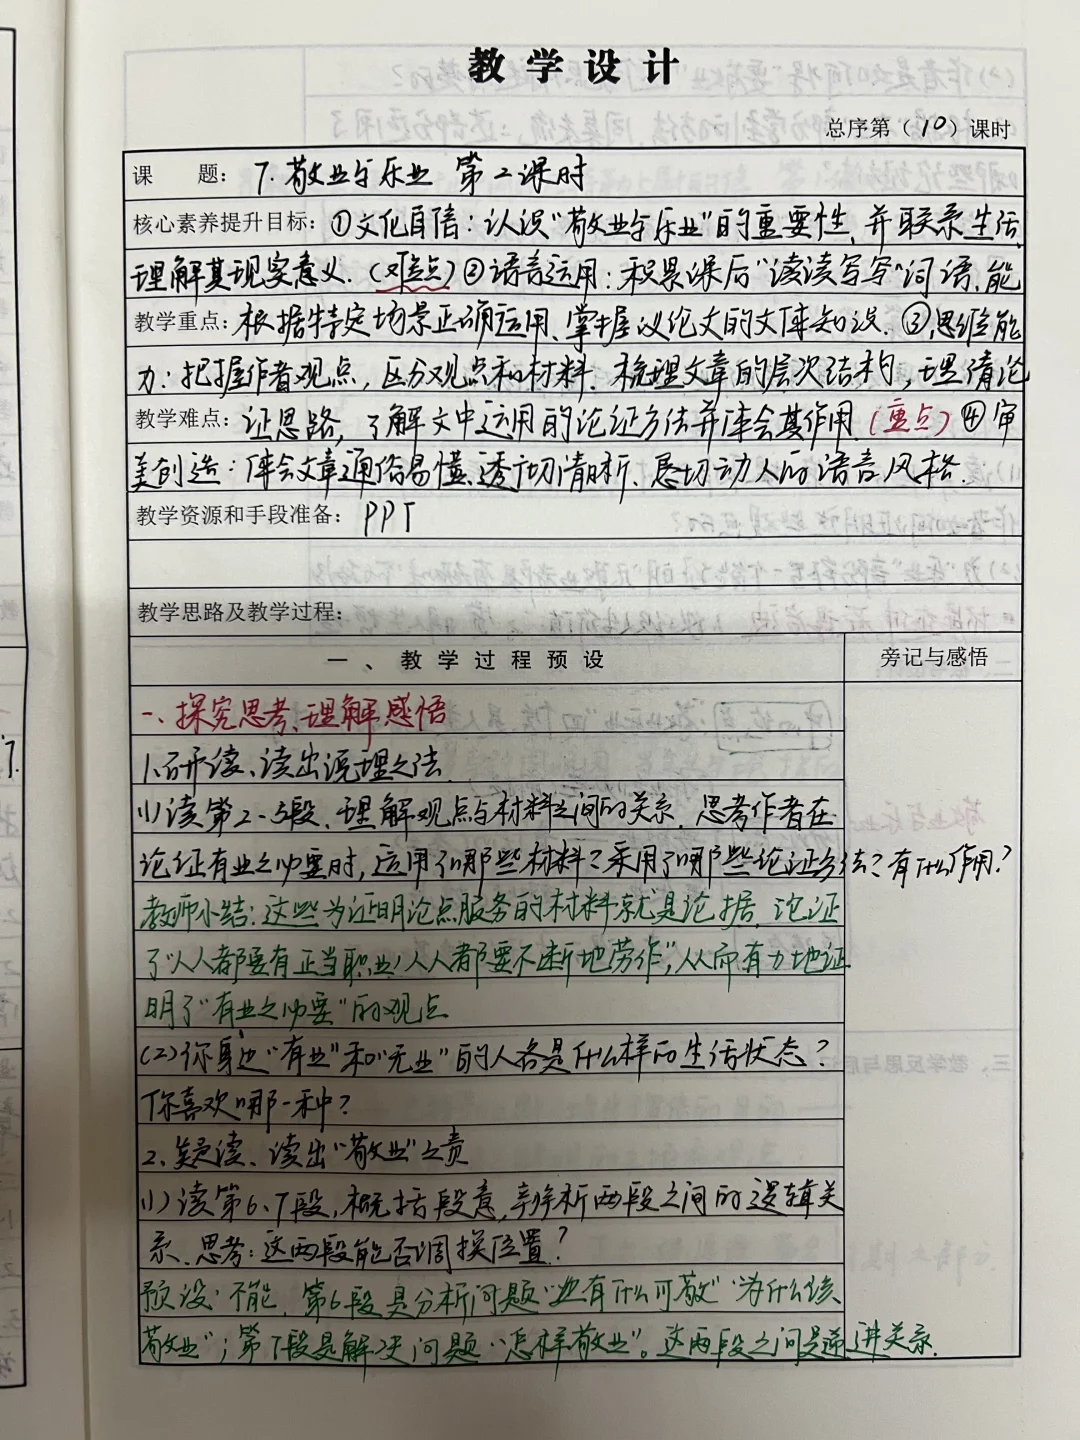 教学设计
总序第（10）课时
课 题：7.敬业与乐业 第2课时
核心素养提升目标：①文化自信：认识“敬业与乐业”的重要性,并联系生活,
理解其现实意义.(难点)②语言运用：积累课后“读读写写”词语,能
教学重点：根据特定场景正确运用、掌握议论文的文体知识.③思维能
力：把握作者观点，区分观点和材料、梳理文章的层次结构，理清论
教学难点：证思路，了解文中运用的论证方法并体会其作用.(重点)④审
美创造：体会文章通俗易懂、透彻清晰、恳切动人的语言风格.
教学资源和手段准备：PPT
教学思路及教学过程：
一、教学过程预设 旁记与感悟
一、探究思考、理解感悟
1、研读、读出说理之法
(1)读第2-5段、理解观点与材料之间的关系.思考作者在
论证有业之必要时，运用了哪些材料？采用了哪些论证方法？有什么作用？
教师小结：这些为证明论点服务的材料就是论据.论证
了“人人都要有正当职业，人人都要不断地劳作”，从而有力地证
明了“有业之必要”的观点
(2)你身边“有业”和“无业”的人各是什么样的生活状态？
你喜欢哪一种？
2、疑读、读出“敬业”之责
(1)读第6、7段，概括段意，辨析两段之间的逻辑关
系.思考：这两段能否调换位置？
预设：不能，第6段是分析问题“业有什么可敬”“为什么该
敬业”；第7段是解决问题“怎样敬业”。这两段之间是递进关系.